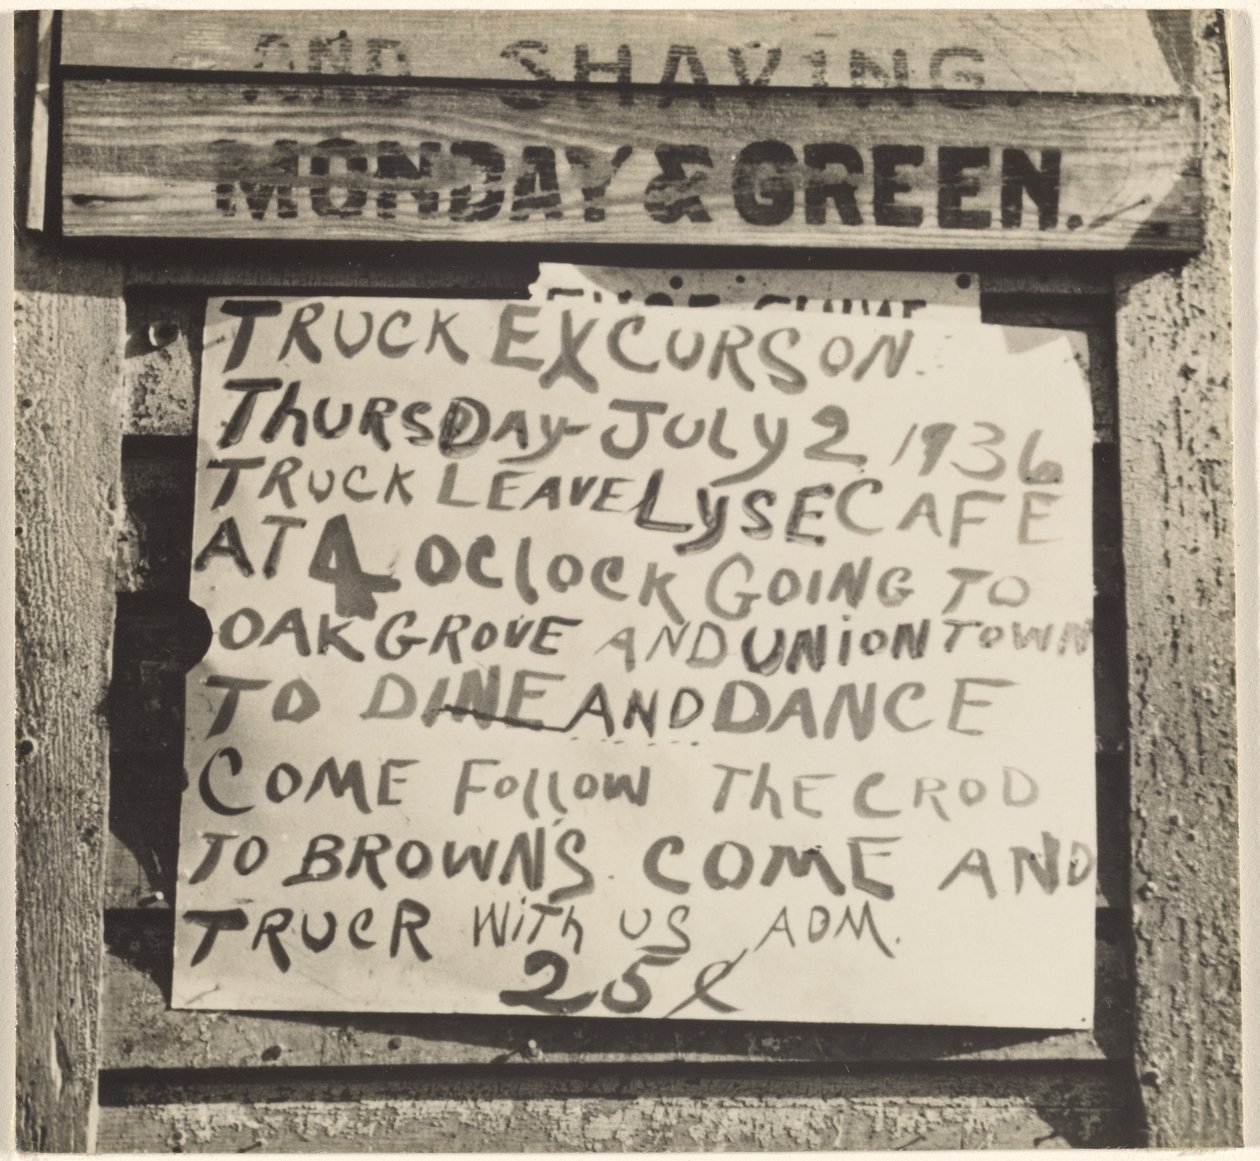 AND SHAVING.
MONDAY & GREEN.
TRUCK EXCURSON
THURSDAY-JULY 2 1936
TRUCK LEAVE LYSE CAFE
AT 4 OCLOCK GOING TO
OAK GROVE AND UNIONTOWN
TO DINE AND DANCE
COME FOLLOW THE CROD
TO BROWN'S COME AND
TRUCR WITH US ADM.
25¢